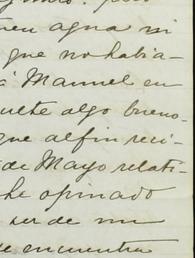 uen agua ni
que no habia-
á Manuel en
sulte algo bueno-
que al fin reci-
de Mayo relati-
he opinado
ser de mu
se encuentra